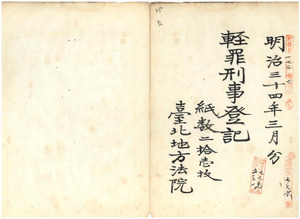 明治三十四年三月分
輕罪刑事登記
紙数二拾壱枚
臺北地方法院